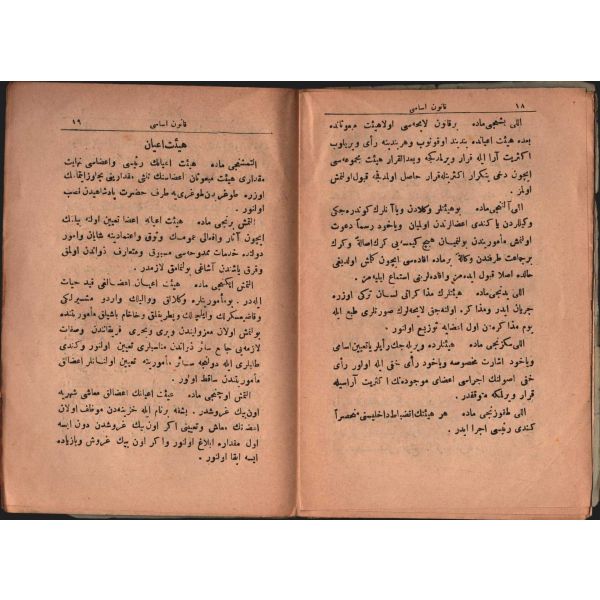 ١٨ قانون اساسی
اللی بشنجی ماده بر قانون لایحه‌سی اولا هیئت مبعوثانده
بعده هیئت اعیانده بند بند اوقونوب و هر بندینه رأی ویریلوب
اکثریت آرا ایله قرار ویرلمدکجه و بعدالقرار هیئت مجموعه‌سی
ایچون دخی بتکرار اکثریتله قرار حاصل اولمدقجه قبول اولنمش
اولمز .
اللی آلتنجی ماده بو هیئتلر وکلادن ویا آنلرك كوندره‌جكی
وکیللردن یا کندی اعضالرندن اولمیان ویاخود رسماً دعوت
اولنمش مأموریندن بولنمیان هیچ کیمسه‌یی کرك اصالةً وکرك
بر جماعت طرفندن وکالةً بر ماده افاده‌سی ایچون کلمش اولدیغی
حالده اصلا قبول ایده‌مز و افاده‌لرینی استماع ایلیه‌مز .
اللی یدنجی ماده هیئتلرك مذاکراتی لسان ترکی اوزره
جریان ایدر و مذاکره اولنه‌جق لایحه‌لرك صورتلری طبع ایله
یوم مذاکره‌دن اول اعضایه توزیع اولنور .
اللی سکزنجی ماده هیئتلرده ویریله‌جك رأیلر یا تعیین اسامی
ویاخود اشارت مخصوصه ویاخود رأی خفی ایله اولور رأی
خفی اصولنك اجراسی اعضای موجوده‌نك اکثریت آراسیله
قرار ویرلمکه متوقفدر .
اللی طقوزنجی ماده هر هیئتك انضباط داخلیسنی منحصراً
کندی رئیسی اجرا ایدر .
قانون اساسی ١٩
هیئت اعیان
التمشنجی ماده هیئت اعیانك رئیسی و اعضاسی نهایت
مقداری هیئت مبعوثان اعضاسنك ثلثی مقدارینی تجاوز ایتمامك
اوزره طوغریدن طوغری‌یه طرف حضرت پادشاهیدن نصب
اولنور .
التمش برنجی ماده هیئت اعیانه اعضا تعیین اولنه بیلمك
ایچون آثار و افعالی عمومك وثوق و اعتمادینه شایان و امور
دولتده خدمات ممدوحه‌سی مسبوق و متعارف ذواتدن اولمق
و قرق یاشندن آشاغی بولنمامق لازمدر .
التمش ایکنجی ماده هیئت اعیان اعضالغی قید حیات
ایله‌در . بو مأموریتلره وکلالق و والیلك و اردو مشیرلکی
و قاضیعسکرلك و ایلچیلك و پطریقلق و خاخام باشیلق مأموریتنده
بولنمش اولان معزولیندن و بری و بحری فریقانندن و صفات
لازمه‌یی جامع سائر ذواتدن مناسبلری تعیین اولنور وکندی
طلبلری ایله دولتجه سائر مأموریته تعیین اولنانلر اعضالق
مأموریتندن ساقط اولور .
التمش اوچنجی ماده هیئت اعیانك اعضالق معاشی شهریه
اون بیك غروشدر . بشقه بر نام ایله خزینه‌دن موظف اولان
اعضانك معاش و تعییناتی اکر اون بیك غروشدن دون ایسه
اول مقداره ابلاغ اولنور و اکر اون بیك غروش ویا زیاده
ایسه ابقا اولنور .